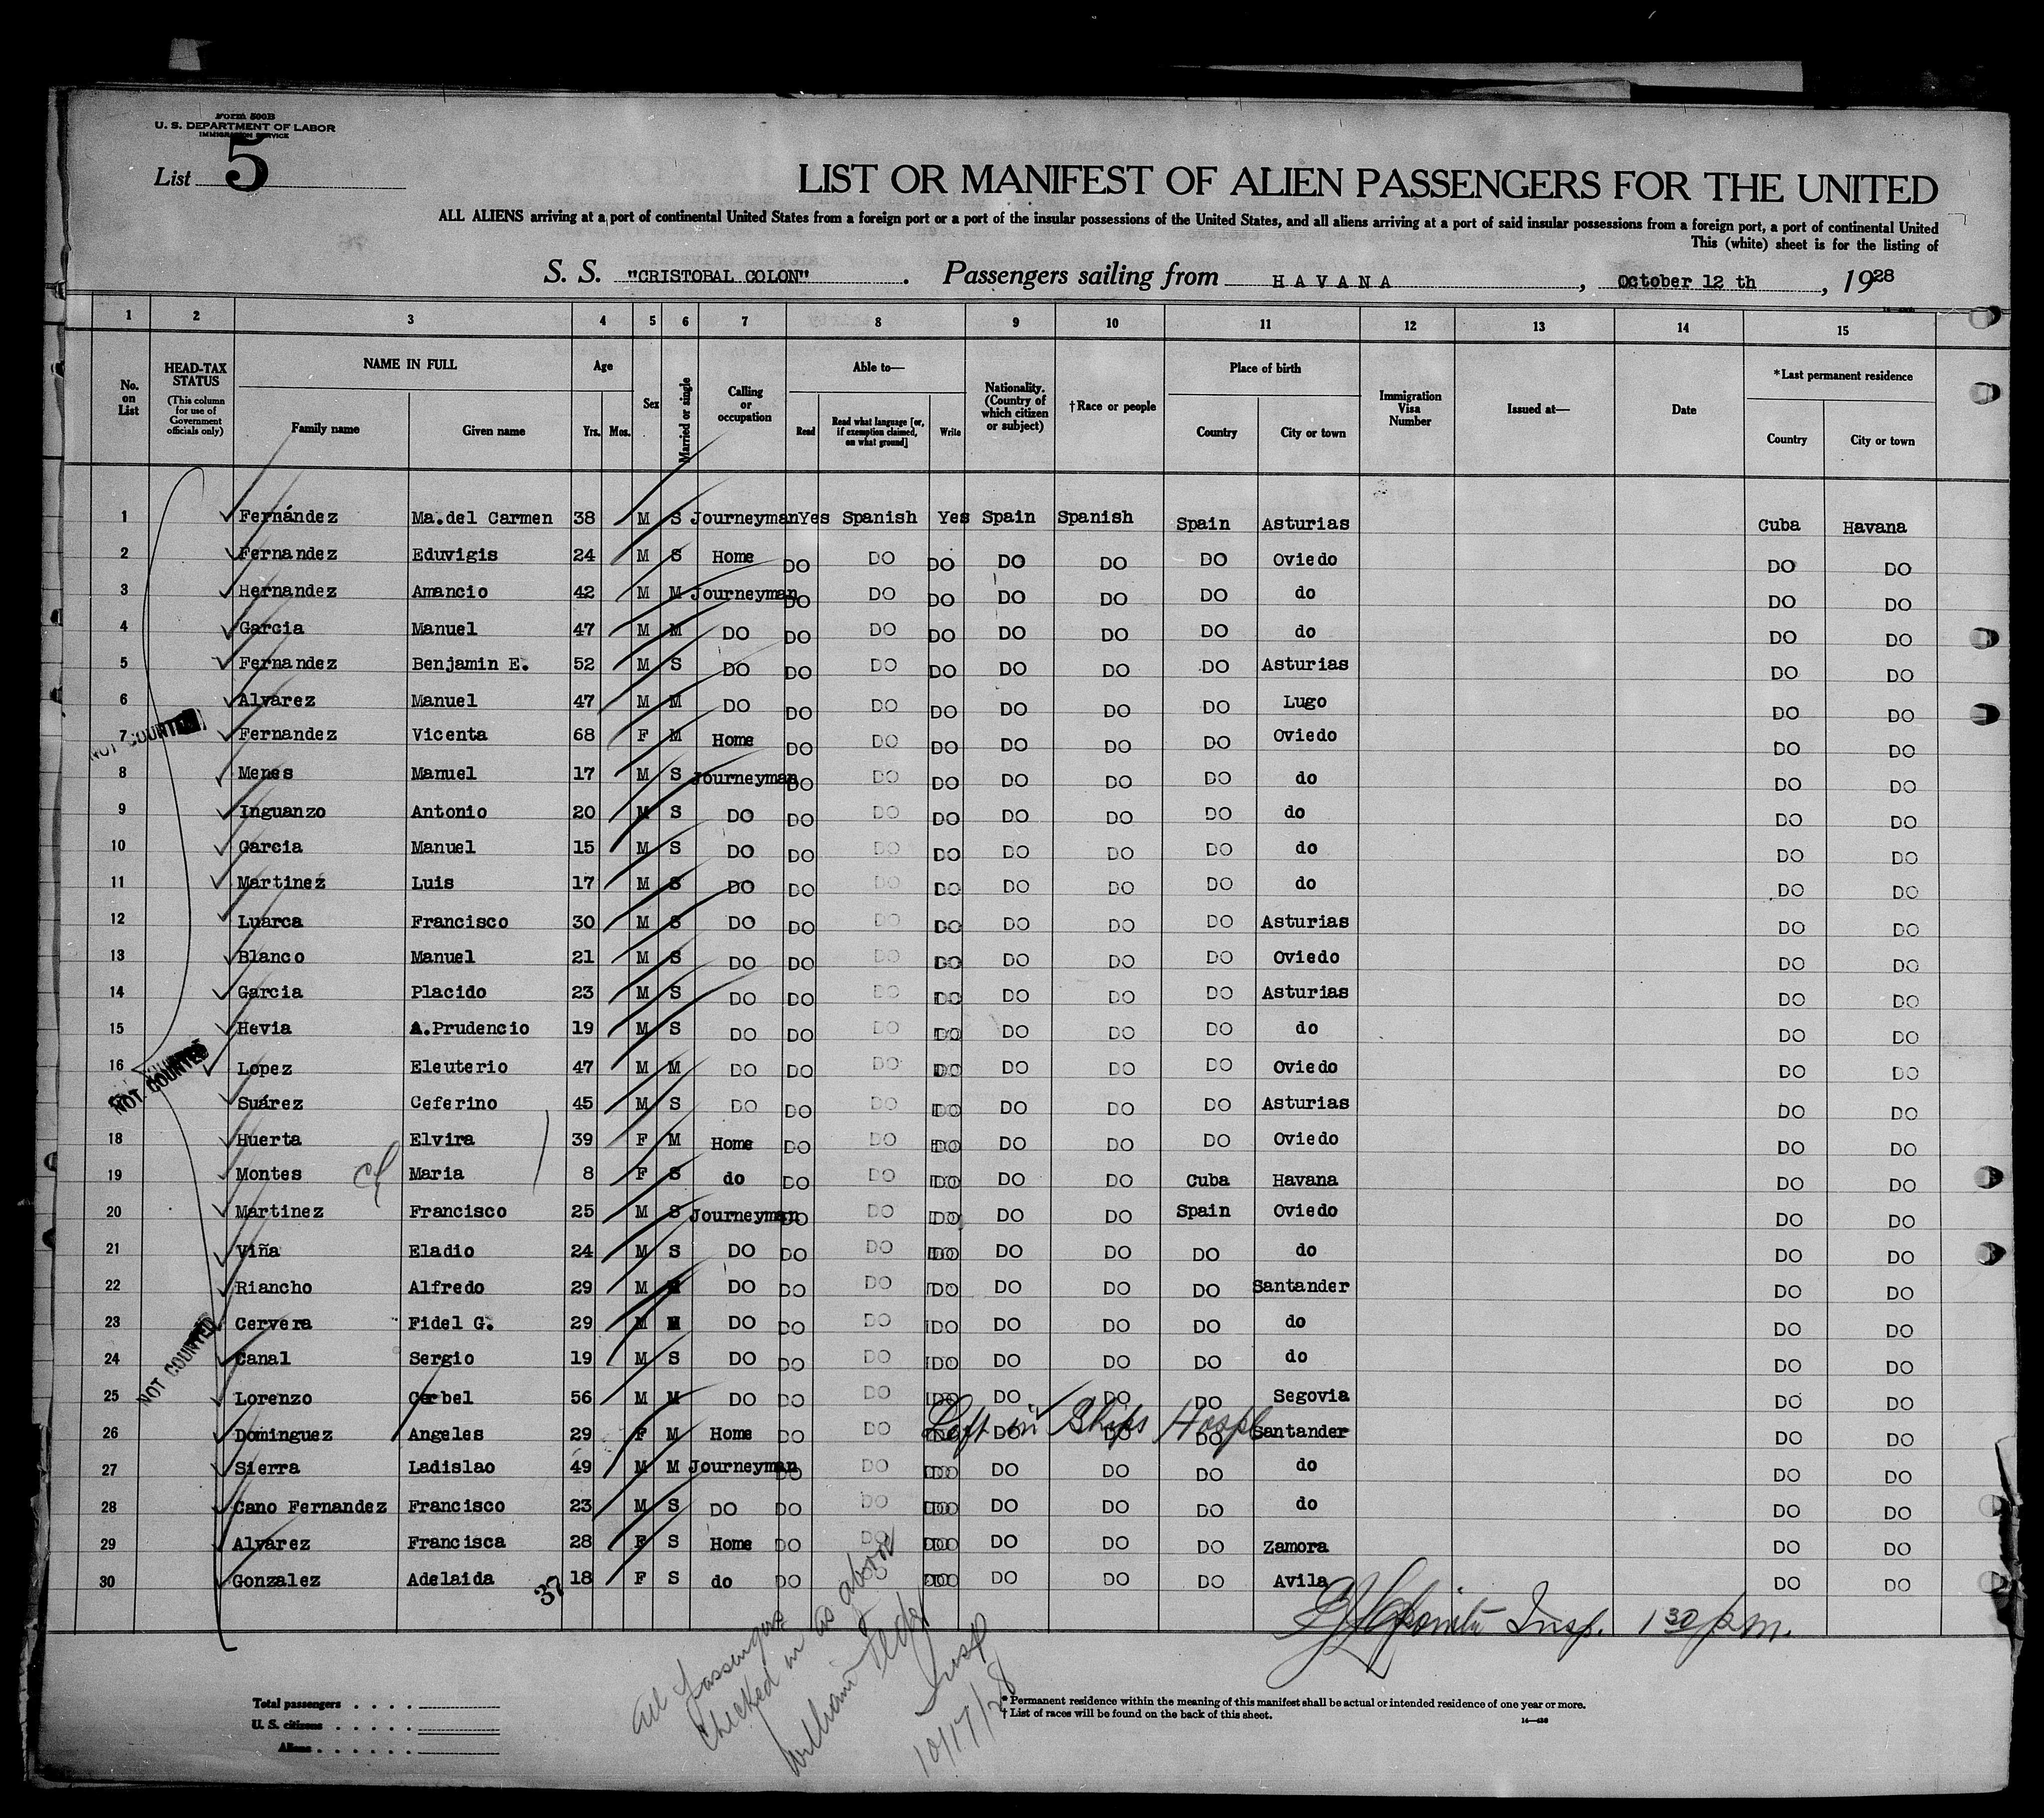 Form 500B
U. S. DEPARTMENT OF LABOR
IMMIGRATION SERVICE
List 5
LIST OR MANIFEST OF ALIEN PASSENGERS FOR THE UNITED
ALL ALIENS arriving at a port of continental United States from a foreign port or a port of the insular possessions of the United States, and all aliens arriving at a port of said insular possessions from a foreign port, a port of continental United
This (white) sheet is for the listing of
S. S. "CRISTOBAL COLON". Passengers sailing from HAVANA, October 12 th, 1928
1 2 3 4 5 6 7 8 9 10 11 12 13 14 15
No. on List HEAD-TAX STATUS (This column for use of Government officials only) NAME IN FULL Family name Given name Age Yrs. Mos. Sex Married or single Calling or occupation Able to— Read Read what language [or, if exemption claimed, on what ground] Write Nationality. (Country of which citizen or subject) †Race or people Place of birth Country City or town Immigration Visa Number Issued at— Date *Last permanent residence Country City or town
1 Fernández Ma.del Carmen 38 M S Journeyman Yes Spanish Yes Spain Spanish Spain Asturias Cuba Havana
2 Fernandez Eduvigis 24 M S Home DO DO DO DO DO DO Oviedo DO DO
3 Hernandez Amancio 42 M M Journeyman DO DO DO DO DO DO do DO DO
4 Garcia Manuel 47 M M DO DO DO DO DO DO DO do DO DO
5 Fernandez Benjamin E. 52 M S DO DO DO DO DO DO DO Asturias DO DO
6 Alvarez Manuel 47 M M DO DO DO DO DO DO DO Lugo DO DO
NOT COUNTED
7 Fernandez Vicenta 68 F M Home DO DO DO DO DO DO Oviedo DO DO
8 Menes Manuel 17 M S Journeyman DO DO DO DO DO DO do DO DO
9 Inguanzo Antonio 20 M S DO DO DO DO DO DO DO do DO DO
10 Garcia Manuel 15 M S DO DO DO DO DO DO DO do DO DO
11 Martinez Luis 17 M S DO DO DO DO DO DO DO do DO DO
12 Luarca Francisco 30 M S DO DO DO DO DO DO DO Asturias DO DO
13 Blanco Manuel 21 M S DO DO DO DO DO DO DO Oviedo DO DO
14 Garcia Placido 23 M S DO DO DO DO DO DO DO Asturias DO DO
15 Hevia A.Prudencio 19 M S DO DO DO DO DO DO DO do DO DO
16 Lopez Eleuterio 47 M M DO DO DO DO DO DO DO Oviedo DO DO
NOT COUNTED
Suárez Ceferino 45 M S DO DO DO DO DO DO DO Asturias DO DO
18 Huerta Elvira 39 F M Home DO DO DO DO DO DO Oviedo DO DO
19 Montes Maria 8 F S do DO DO DO DO DO Cuba Havana DO DO
20 Martinez Francisco 25 M S Journeyman DO DO DO DO DO Spain Oviedo DO DO
21 Viña Eladio 24 M S DO DO DO DO DO DO DO do DO DO
22 Riancho Alfredo 29 M M DO DO DO DO DO DO DO Santander DO DO
23 Cervera Fidel G. 29 M M DO DO DO DO DO DO DO do DO DO
NOT COUNTED
24 Canal Sergio 19 M S DO DO DO DO DO DO DO do DO DO
25 Lorenzo Corbel 56 M M DO DO DO DO DO DO DO Segovia DO DO
Left in Ships Hospl
26 Dominguez Angeles 29 F M Home DO DO DO DO DO DO Santander DO DO
27 Sierra Ladislao 49 M M Journeyman DO DO DO DO DO DO do DO DO
28 Cano Fernandez Francisco 23 M S DO DO DO DO DO DO DO do DO DO
29 Alvarez Francisca 28 F S Home DO DO DO DO DO DO Zamora DO DO
30 Gonzalez Adelaida 18 F S do DO DO DO DO DO DO Avila DO DO
37
Insp. 1 30 p.m.
All passengers
checked in as above
William
Insp
10/17/28
Total passengers
U. S. citizens
Aliens
* Permanent residence within the meaning of this manifest shall be actual or intended residence of one year or more.
† List of races will be found on the back of this sheet.